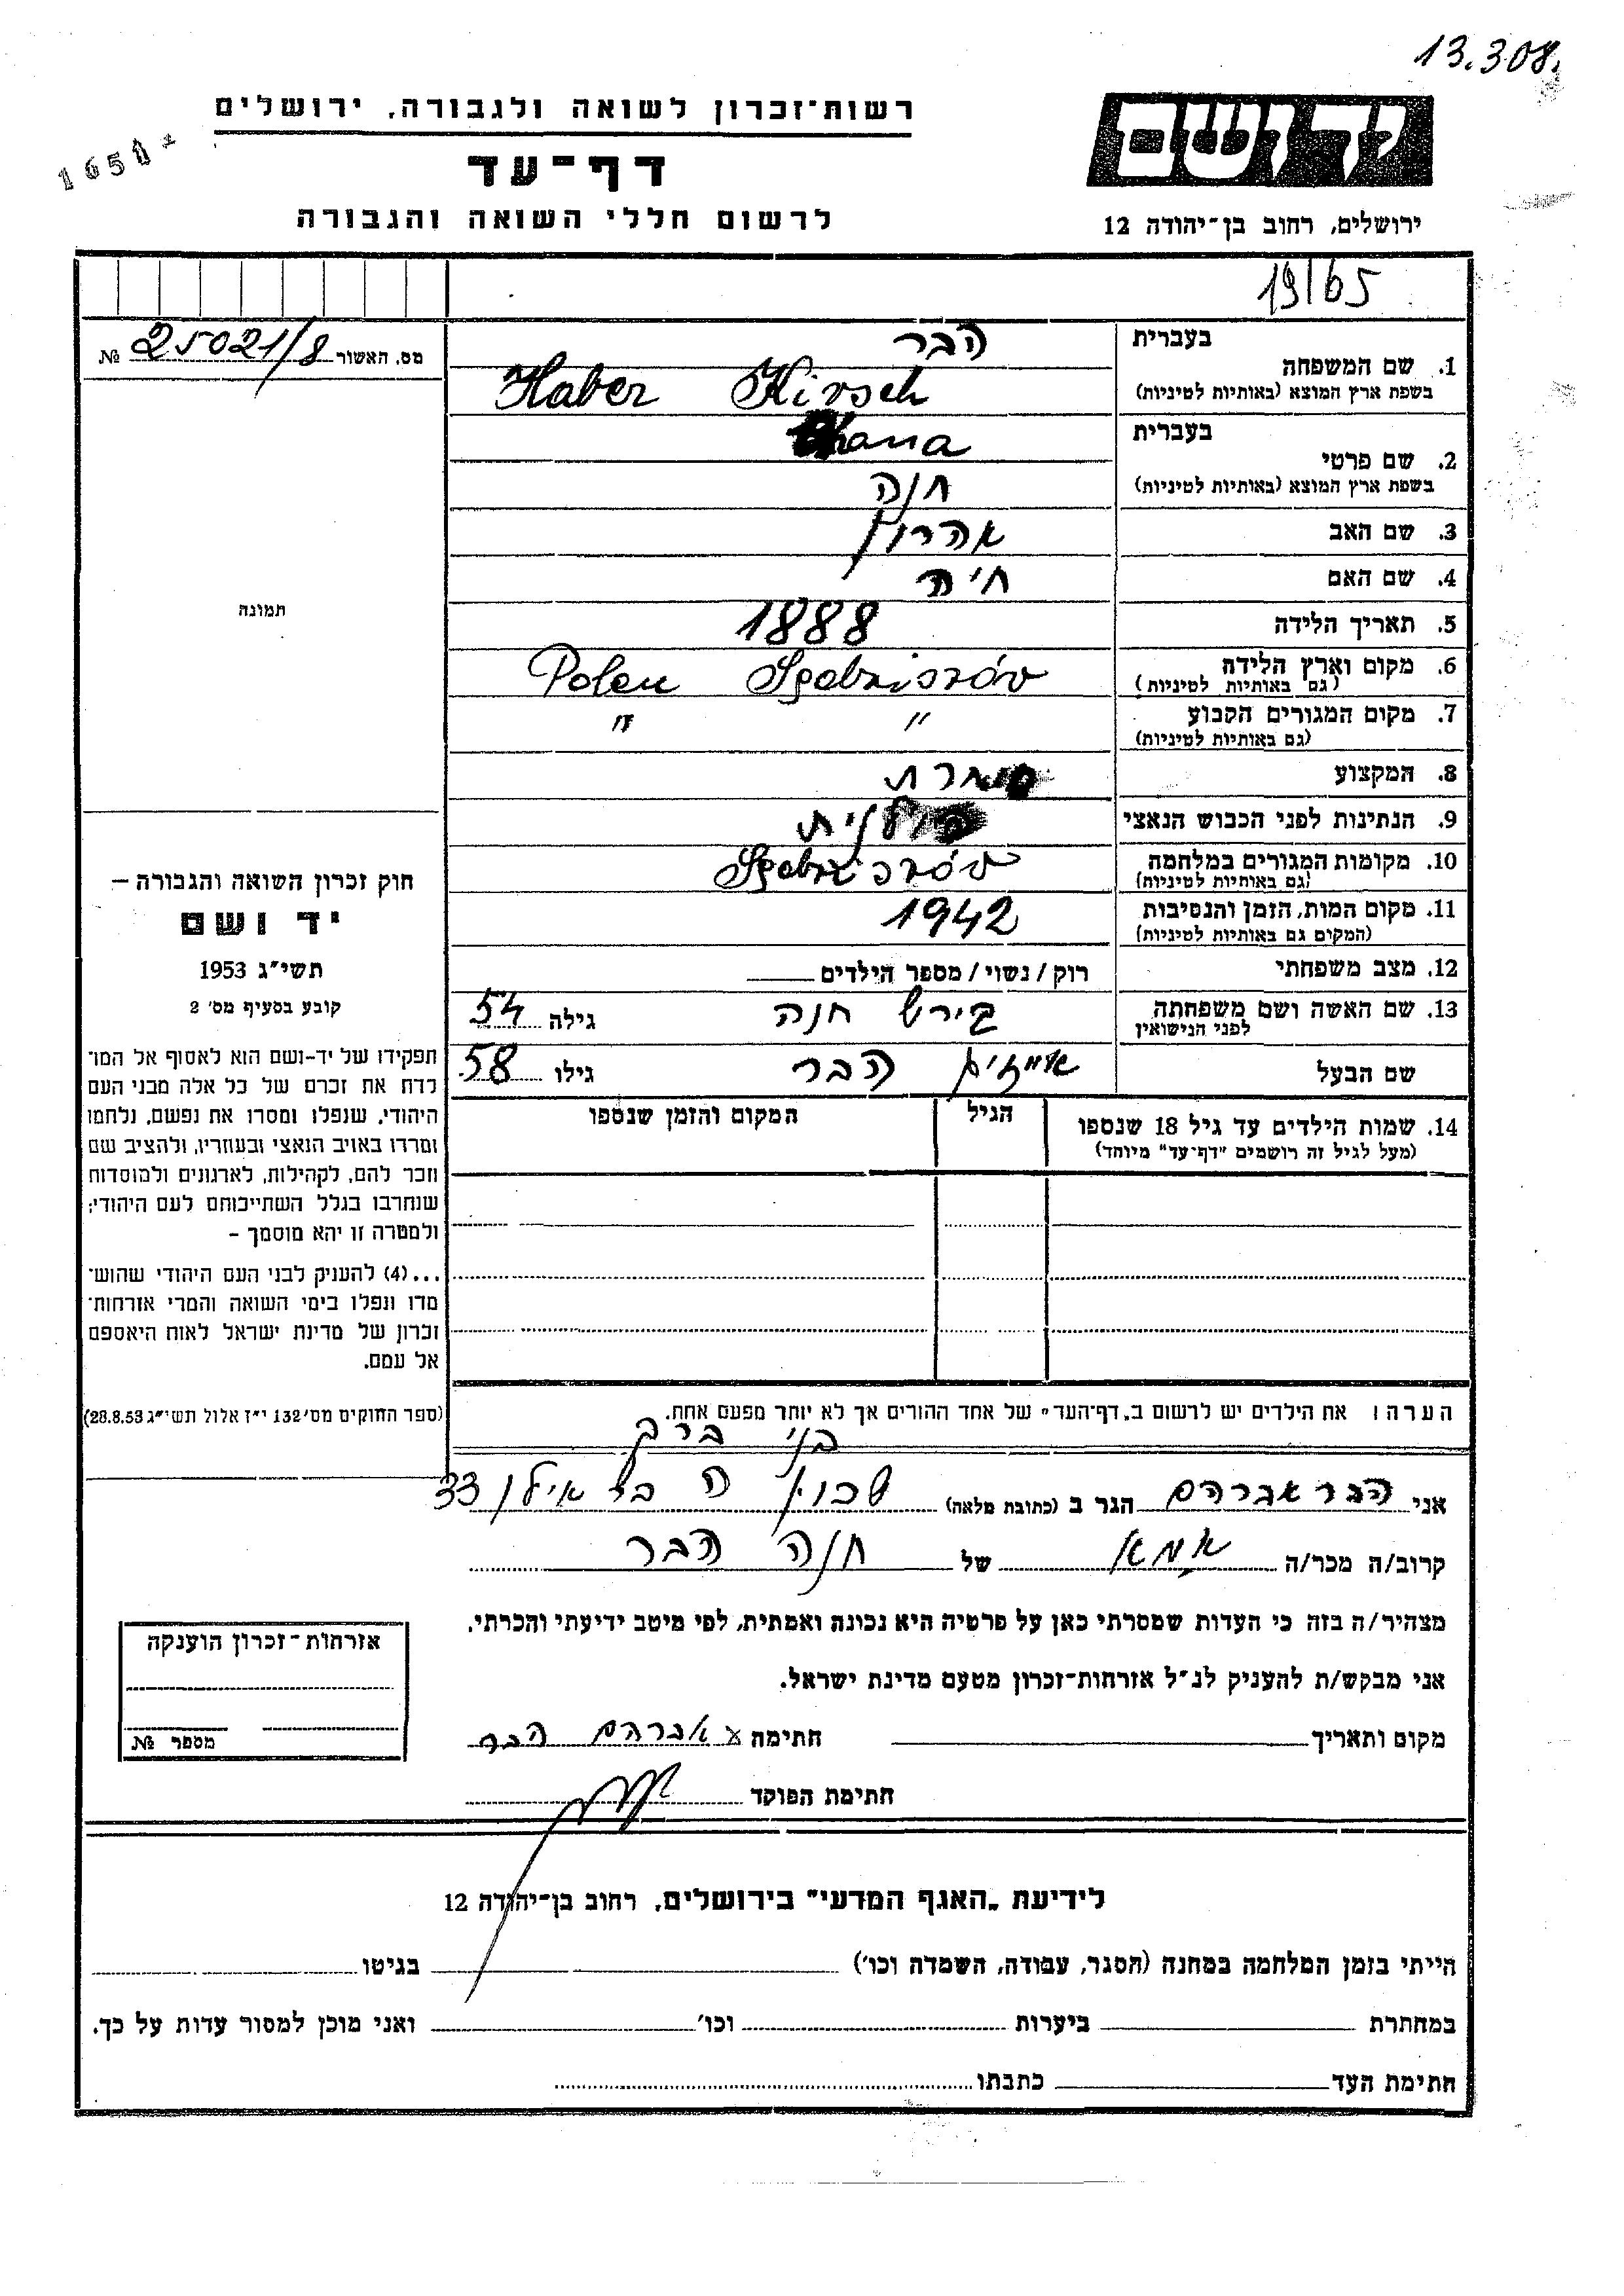 13.308.
יד ושם
רשות־זכרון לשואה ולגבורה, ירושלים
דף־עד
לרשום חללי השואה והגבורה
ירושלים, רחוב בן־יהודה 12
19/65
מס. האשור 25021/8 №
בעברית הבר
1. שם המשפחה
בשפת ארץ המוצא (באותיות לטיניות) Haber Hirsch
בעברית Chana
2. שם פרטי
בשפת ארץ המוצא (באותיות לטיניות) חנה
3. שם האב אהרון
4. שם האם חיה
5. תאריך הלידה 1888
6. מקום וארץ הלידה Polen
(גם באותיות לטיניות)
7. מקום המגורים הקבוע " "
(גם באותיות לטיניות)
8. המקצוע סוחרת
9. הנתינות לפני הכבוש הנאצי פולנית
10. מקומות המגורים במלחמה
(גם באותיות לטיניות)
11. מקום המות, הזמן והנסיבות 1942
(המקום גם באותיות לטיניות)
12. מצב משפחתי רוק / נשוי / מספר הילדים
13. שם האשה ושם משפחתה חנה גילה 54
לפני הנישואין
שם הבעל הבר גילו 58
14. שמות הילדים עד גיל 18 שנספו הגיל המקום והזמן שנספו
(מעל לגיל זה רושמים "דף־עד" מיוחד)
הערה: את הילדים יש לרשום ב„דף־העד" של אחד ההורים אך לא יותר מפעם אחת.
תמונה
חוק זכרון השואה והגבורה —
יד ושם
תשי"ג 1953
קובע בסעיף מס' 2
תפקידו של יד-ושם הוא לאסוף אל המו־
לדת את זכרם של כל אלה מבני העם
היהודי, שנפלו ומסרו את נפשם, נלחמו
ומרדו באויב הנאצי ובעוזריו, ולהציב שם
וזכר להם, לקהילות, לארגונים ולמוסדות
שנחרבו בגלל השתייכותם לעם היהודי;
ולמטרה זו יהא מוסמך –
...(4) להעניק לבני העם היהודי שהוש־
מדו ונפלו בימי השואה והמרי אזרחות־
זכרון של מדינת ישראל לאות היאספם
אל עמם.
(ספר החוקים מס' 132 י"ז אלול תשי"ג 28.8.53)
בני ברק
אני הבר אברהם הגר ב (כתובת מלאה) שכון ה בר אילן 33
קרוב/ה מכר/ה אמא של חנה הבר
מצהיר/ה בזה כי העדות שמסרתי כאן על פרטיה היא נכונה ואמתית, לפי מיטב ידיעתי והכרתי.
אני מבקש/ת להעניק לנ"ל אזרחות־זכרון מטעם מדינת ישראל.
מקום ותאריך חתימה x אברהם הבר
חתימת הפוקד
אזרחות־זכרון הוענקה
מספר №
לידיעת „האגף המדעי" בירושלים, רחוב בן־יהודה 12
הייתי בזמן המלחמה במחנה (הסגר, עבודה, השמדה וכו') בגיטו
במחתרת ביערות וכו' ואני מוכן למסור עדות על כך.
חתימת העד כתבתו